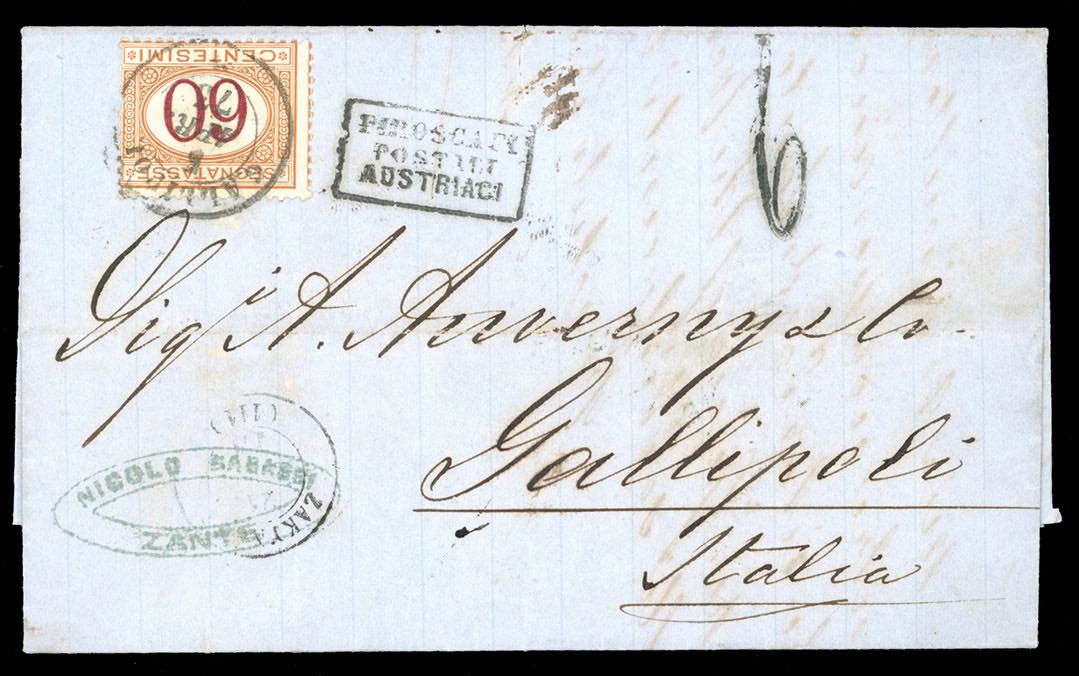 CENTESIMI
60
SEGNATASSE
PIROSCAFI
POSTALI
AUSTRIACI
6
Sig.i A. Auverny & Co.
Gallipoli
Italia
NICOLO
ZANTE
ZAKY